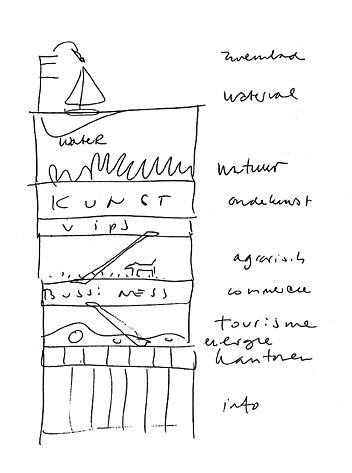 zwembad
waterval
water
natuur
KUNST
VIPS
agrarisch
BUSSINESS commercie
tourisme
energie
kantoren
info